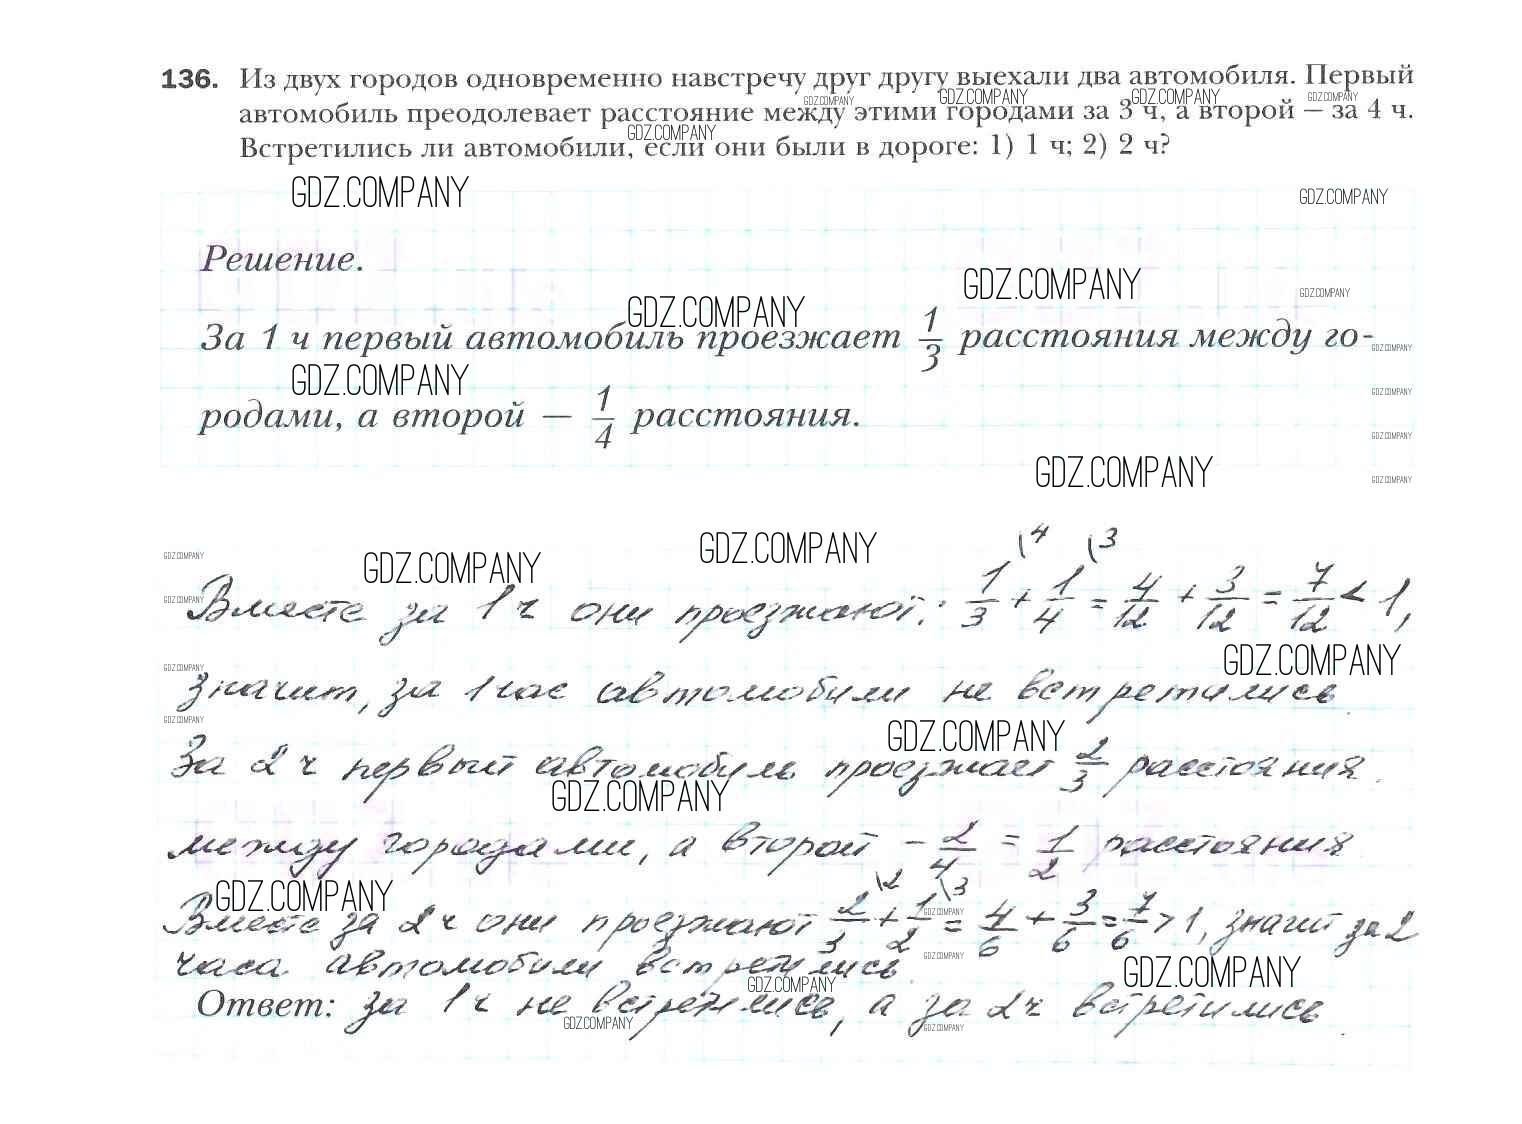 136. Из двух городов одновременно навстречу друг другу выехали два автомобиля. Первый
автомобиль преодолевает расстояние между этими городами за 3 ч, а второй – за 4 ч.
Встретились ли автомобили, если они были в дороге: 1) 1 ч; 2) 2 ч?
GDZ.COMPANY
Решение.
За 1 ч первый автомобиль проезжает 1/3 расстояния между го-
родами, а второй — 1/4 расстояния.
Вместе за 1 ч они проезжают: 1/3 \4 + 1/4 \3 = 4/12 + 3/12 = 7/12 < 1,
значит, за 1 час автомобили не встретились
За 2 ч первый автомобиль проезжает 2/3 расстояния
между городами, а второй – 2/4 = 1/2 расстояния
Вместе за 2 ч они проезжают 2/3 \2 + 1/2 \3 = 4/6 + 3/6 = 7/6 > 1, значит за 2
часа автомобили встретились
Ответ: за 1 ч не встретились, а за 2 ч встретились